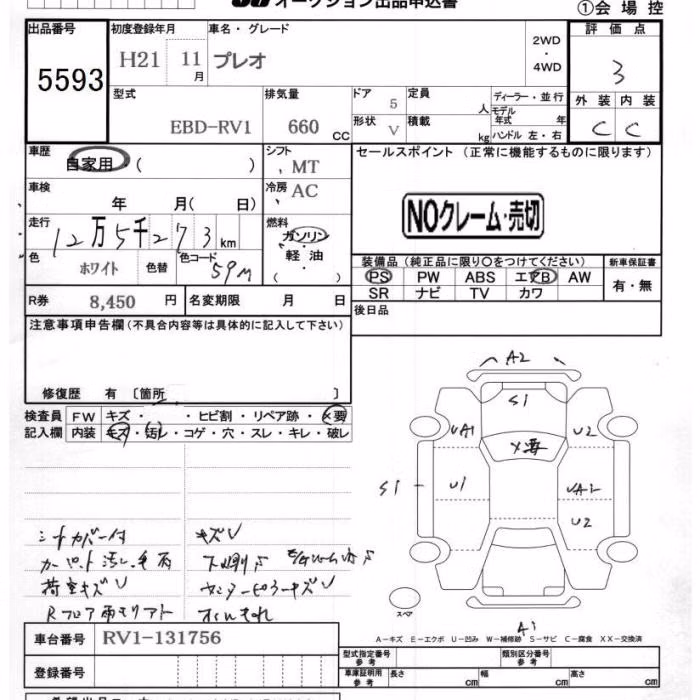 オークション出品申込書
①会場控
出品番号 初度登録年月 車名・グレード 評価点
5593 H21 11月 プレオ 2WD・4WD 3
型式 排気量 ドア 定員 ディーラー・並行 外装 内装
EBD-RV1 660 CC 5 人 モデル年式 年 C C
形状 V 積載 kg ハンドル 左・右
車歴 シフト セールスポイント (正常に機能するものに限ります)
自家用 ( ) MT
車検 冷房
年 月( 日) AC
NOクレーム・売切
走行 燃料
12万5千273km ガソリン・軽油
色 ホワイト 色替 色コード 59M ( )
装備品 (純正品に限り〇をつけてください) 新車保証書
PS PW ABS エアB AW 有・無
SR ナビ TV カワ
R券 8,450 円 名変期限 月 日 後日品
注意事項申告欄(不具合内容等は具体的に記入して下さい)
修復歴 有 〔箇所 〕
検査員 FW キズ・ ・ヒビ割・リペア跡・×要
記入欄 内装 キズ・汚れ・コゲ・穴・スレ・キレ・破レ
A2
S1
UA1 U2
×要
S1 U1 UA1
U2
シートカバー付 キズU
荷室キズU
スペア
A1
A－キズ E－エクボ U－凹み W－補修跡 S－サビ C－腐食 XX－交換済
車台番号 RV1-131756
型式指定番号 参考 類別区分番号 参考
登録番号 車庫証明用 参考 長さ cm 幅 cm 高さ cm